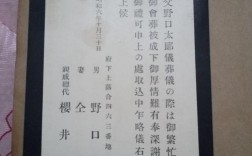 父野口太郎儀葬儀の際は御繁忙
御會葬被成下御厚情難有奉深謝
御禮可申上の處取込中乍略儀右
上候
和六年十月三十日
府下上落合四六三番地
男 野口
妻 仝
親戚總代 櫻井